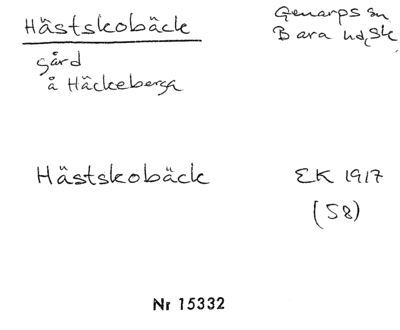 Hästskobäck
Genarps sn
Bara hd, Sk
gård
å Häckeberga
Hästskobäck
EK 1917
(58)
Nr 15332